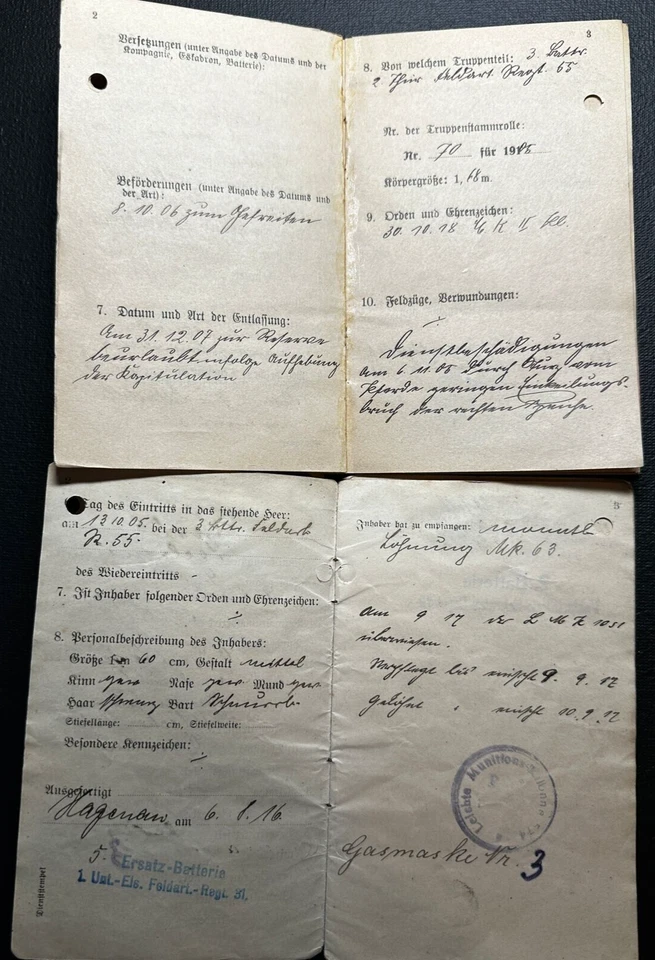 2
Versetzungen (unter Angabe des Datums und der
Kompagnie, Eskadron, Batterie):
Beförderungen (unter Angabe des Datums und
der Art):
8. 10. 06 zum Gefreiten
7. Datum und Art der Entlassung:
Am 31. 12. 07 zur Reserve
beurlaubt infolge Aufhebung
der Kapitulation
3
8. Von welchem Truppenteil: 3. Battr.
2 Thür Feldart Regt. 55
Nr. der Truppenstammrolle:
Nr. 70 für 1905
Körpergröße: 1,68 m.
9. Orden und Ehrenzeichen:
30. 10. 18 II
10. Feldzüge, Verwundungen:
Dienstbeschädigungen
am 6 11 05 durch Sturz vom
Pferde geringen
bruch der rechten
Tag des Eintritts in das stehende Heer:
am 13 10. 05. bei der 3 Bttr. Feldart
R. 55
des Wiedereintritts -
7. Ist Inhaber folgender Orden und Ehrenzeichen:
8. Personalbeschreibung des Inhabers:
Größe 1 m 60 cm, Gestalt mittel
Kinn gew Nase gew Mund gew
Haar schwarz Bart Schnurrb
Stiefellänge: cm, Stiefelweite:
Besondere Kennzeichen:
Ausgefertigt
Hagenau am 6. 8. 16.
5. Ersatz-Batterie
1. Unt.-Els. Feldart.-Regt. 31.
Dienststempel
Inhaber hat zu empfangen: monatl
Löhnung Mk. 63.
Am 9 17 der L M K 1051
überwiesen.
Verpflegt bis 9. 9. 17
Gelöhnt " 10. 9. 17
Leichte Munitions-Kolonne
Gasmaske Nr. 3